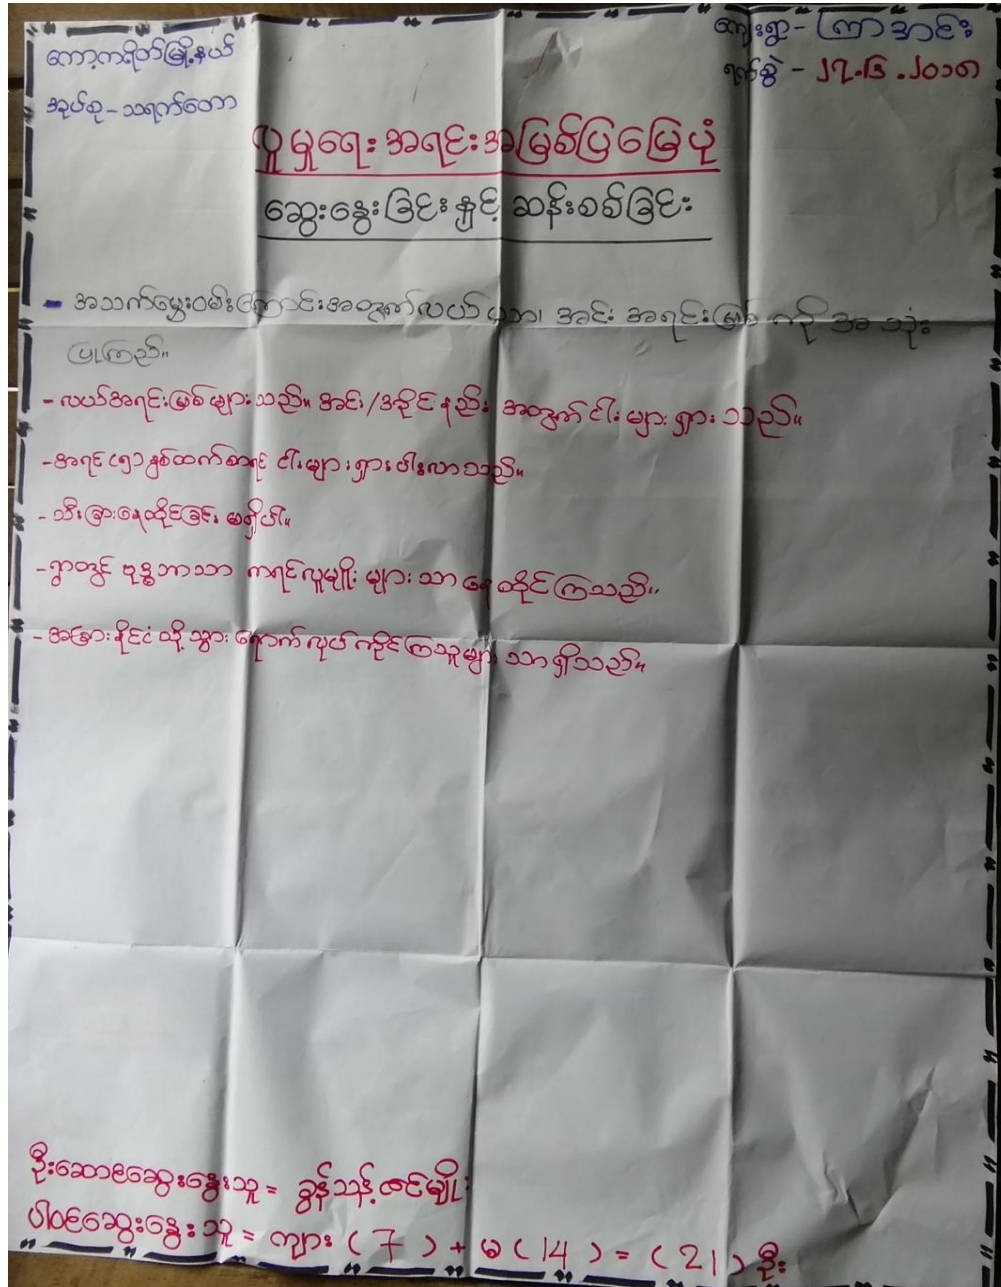 ကော့ကရိတ်မြို့နယ်
ကျေးရွာ - ကြာအင်း
ရက်စွဲ - ၂၇.၆.၂၀၁၈
အုပ်စု - သရက်တော
လူမှုရေးအရင်းအမြစ်ပြမြေပုံ
ဆွေးနွေးခြင်းနှင့် ဆန်းစစ်ခြင်း
- အသက်မွေးဝမ်းကြောင်းအတွက်လယ် အင်း အရင်းမြစ် ကို အသုံး
ပြုကြည်။
- လယ်အရင်းမြစ်များသည်။ အင်း/အိုင်နည်း အတွက် ငါးများ ရှားသည်။
- အရင် (၅) နှစ်ထက်စာရင် ငါးများရှားပါးလာသည်။
- သီးခြားနေထိုင်ခြင်း မရှိပါ။
- ရွာတွင် ဗုဒ္ဓဘာသာ ကရင်လူမျိုး များ သာ နေထိုင်ကြသည်။
- အခြားနိုင်ငံသို့ သွားရောက်လုပ်ကိုင်ကြသူများ သာရှိသည်။
ဦးဆောင်ဆွေးနွေးသူ = ခွန်သန့်ဇင်မျိုး
ပါဝင်ဆွေးနွေးသူ = ကျား ( 7 ) + မ ( 14 ) = ( 21 ) ဦး